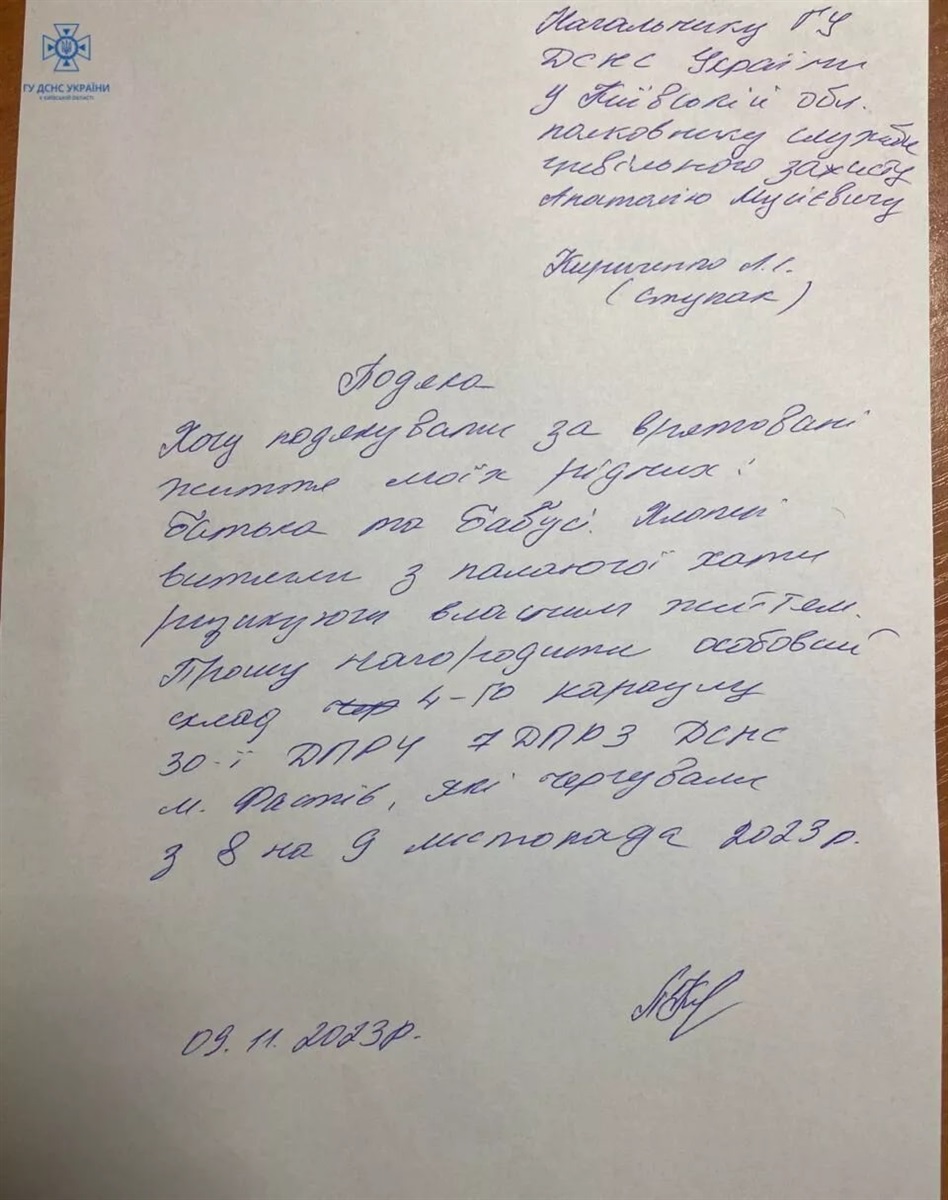 ГУ ДСНС УКРАЇНИ
У КИЇВСЬКІЙ ОБЛАСТІ
Начальнику ГУ
ДСНС України
у Київській обл.
полковнику служби
цивільного захисту
Анатолію Мусієвичу
Кириченко Л.І.
(Ступак)
Подяка
Хочу подякувати за врятовані
життя моїх рідних:
Батька та Бабусі. Хлопці
витягли з палаючої хати
ризикуючи власним життєм.
Прошу нагородити особовий
склад 4-го караулу
30-ї ДПРЧ 7 ДПРЗ ДСНС
м. Фастів, які чергували
з 8 на 9 листопада 2023р.
09.11.2023р.